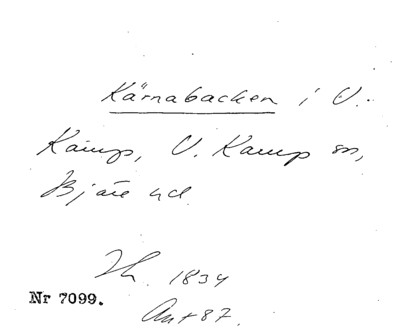 Kärnabacken i V.
Karup, V. Karup sn,
Bjäre hd.
Th. 1834
Ant 87.
Nr 7099.